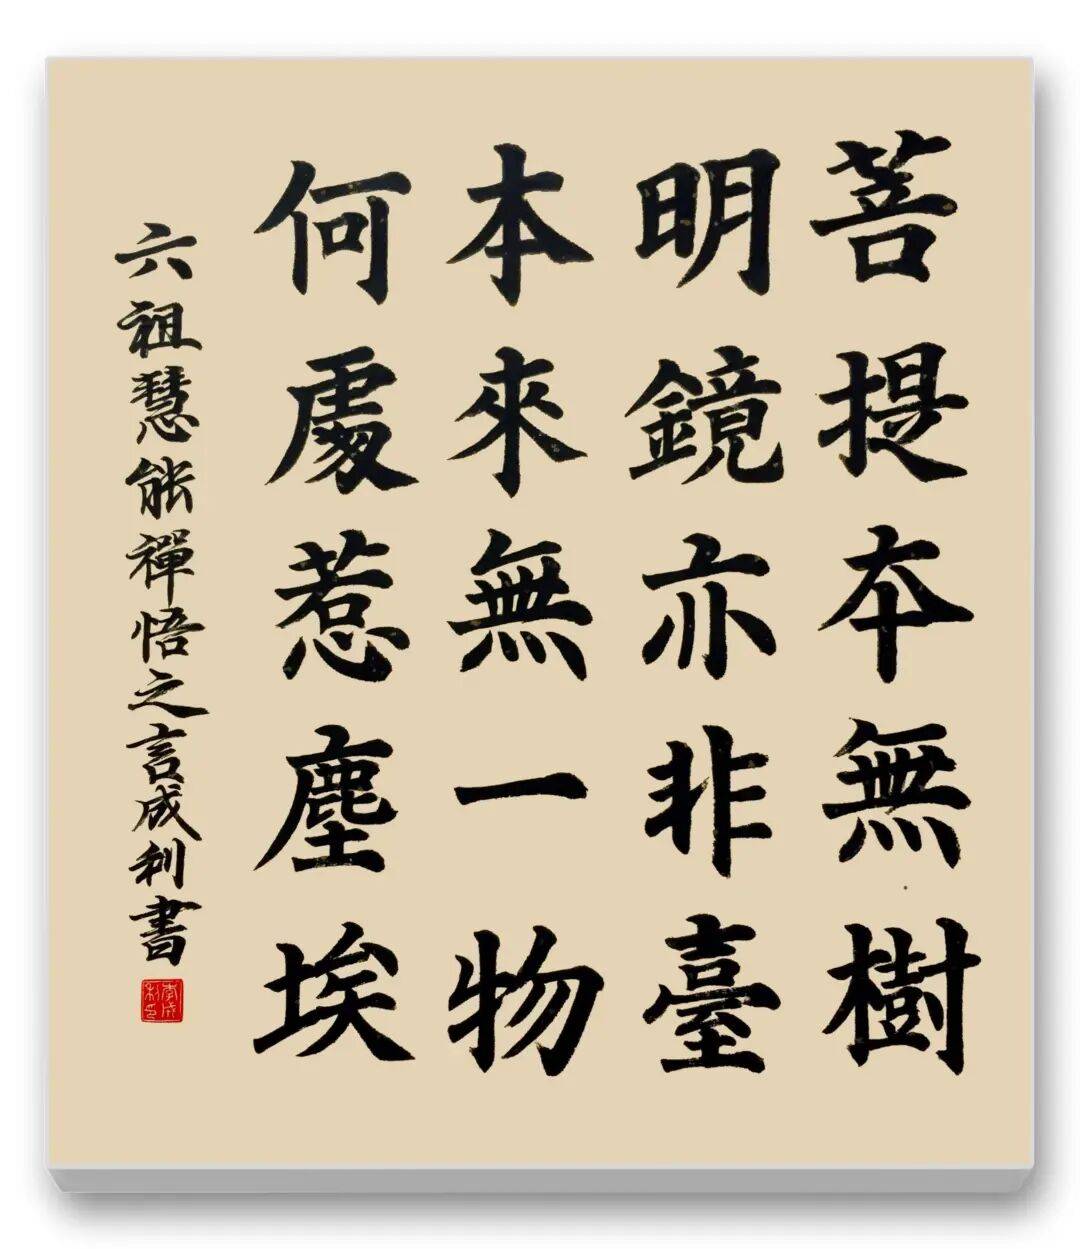 菩提本無樹
明鏡亦非臺
本來無一物
何處惹塵埃
六祖慧能禪悟之言成利書
李成利印